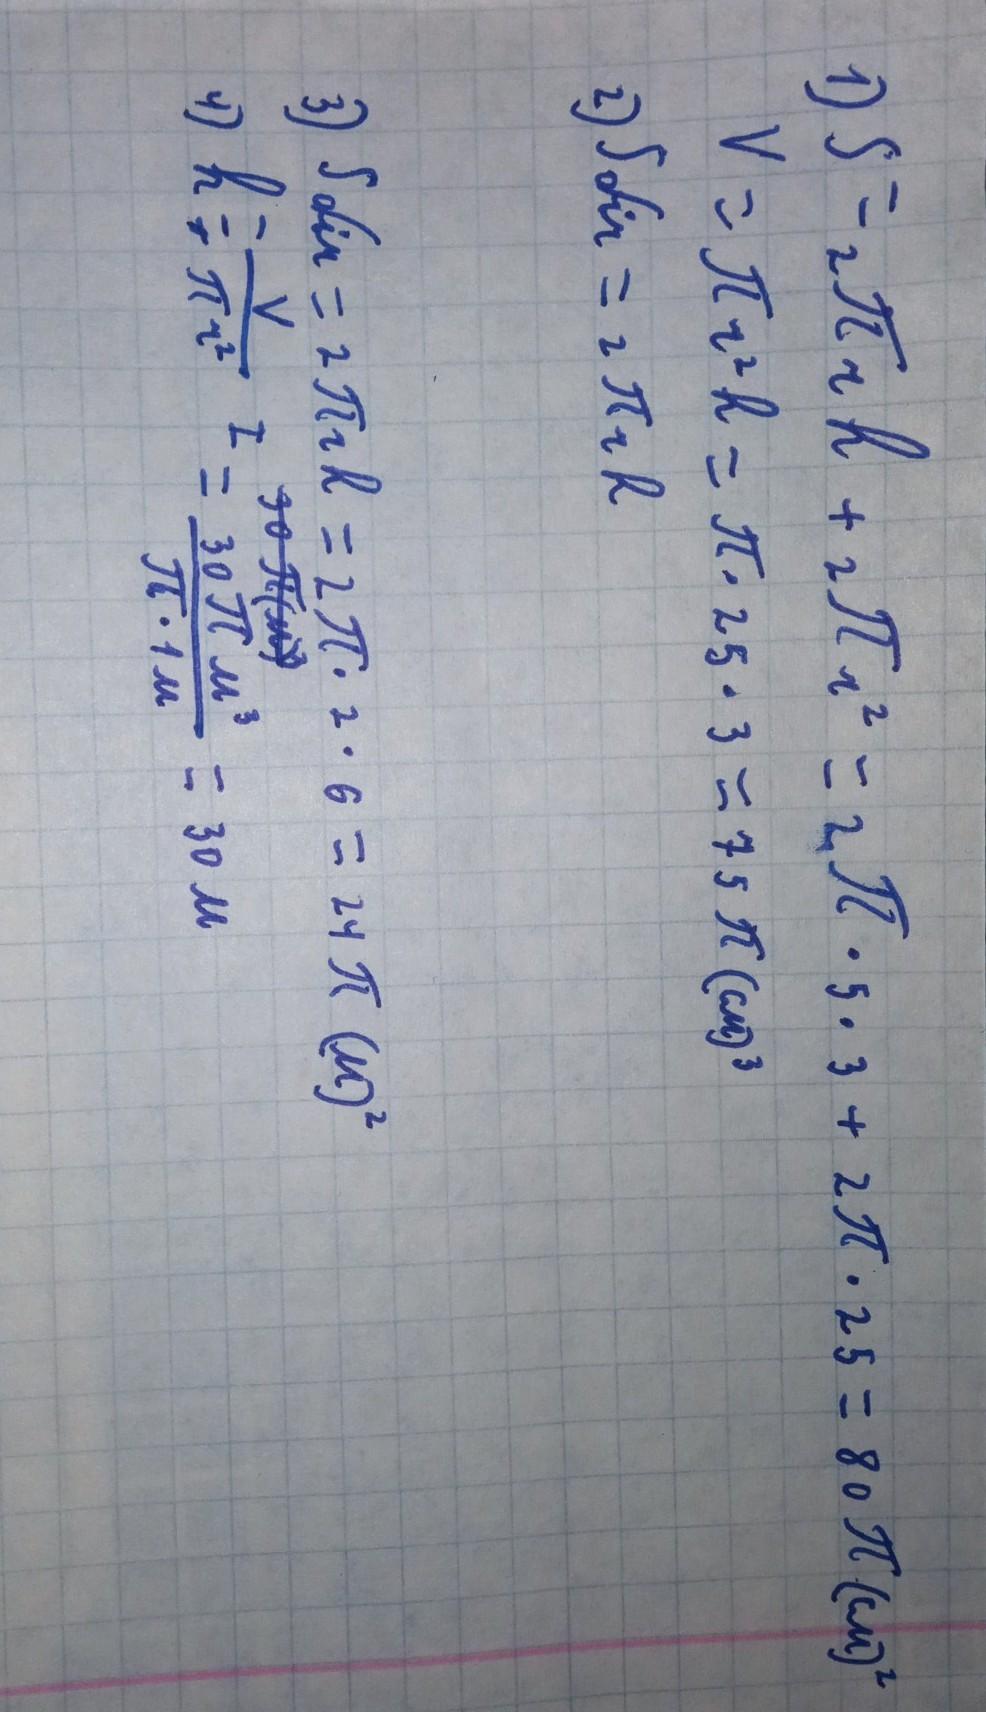 1) S = 2πrh + 2πr² = 2π · 5 · 3 + 2π · 25 = 80π (см)²
V = πr²h = π · 25 · 3 = 75π (см)³
2) Sбп = 2πrh
3) Sбп = 2πrh = 2π · 2 · 6 = 24π (м)²
4) h = V / πr² = 30π м³ / π · 1м = 30 м